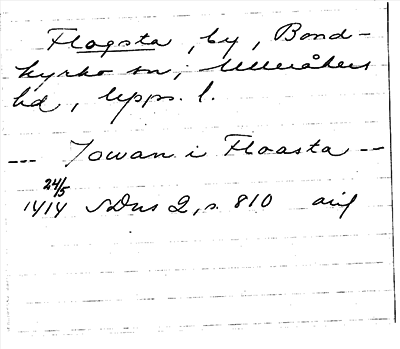 Flogsta, by, Bond-
kyrko sn, Ulleråkers
hd, Upps. l.
--- Jowan i Floasta --
24/5
1414 SDns 2, s. 810 avs